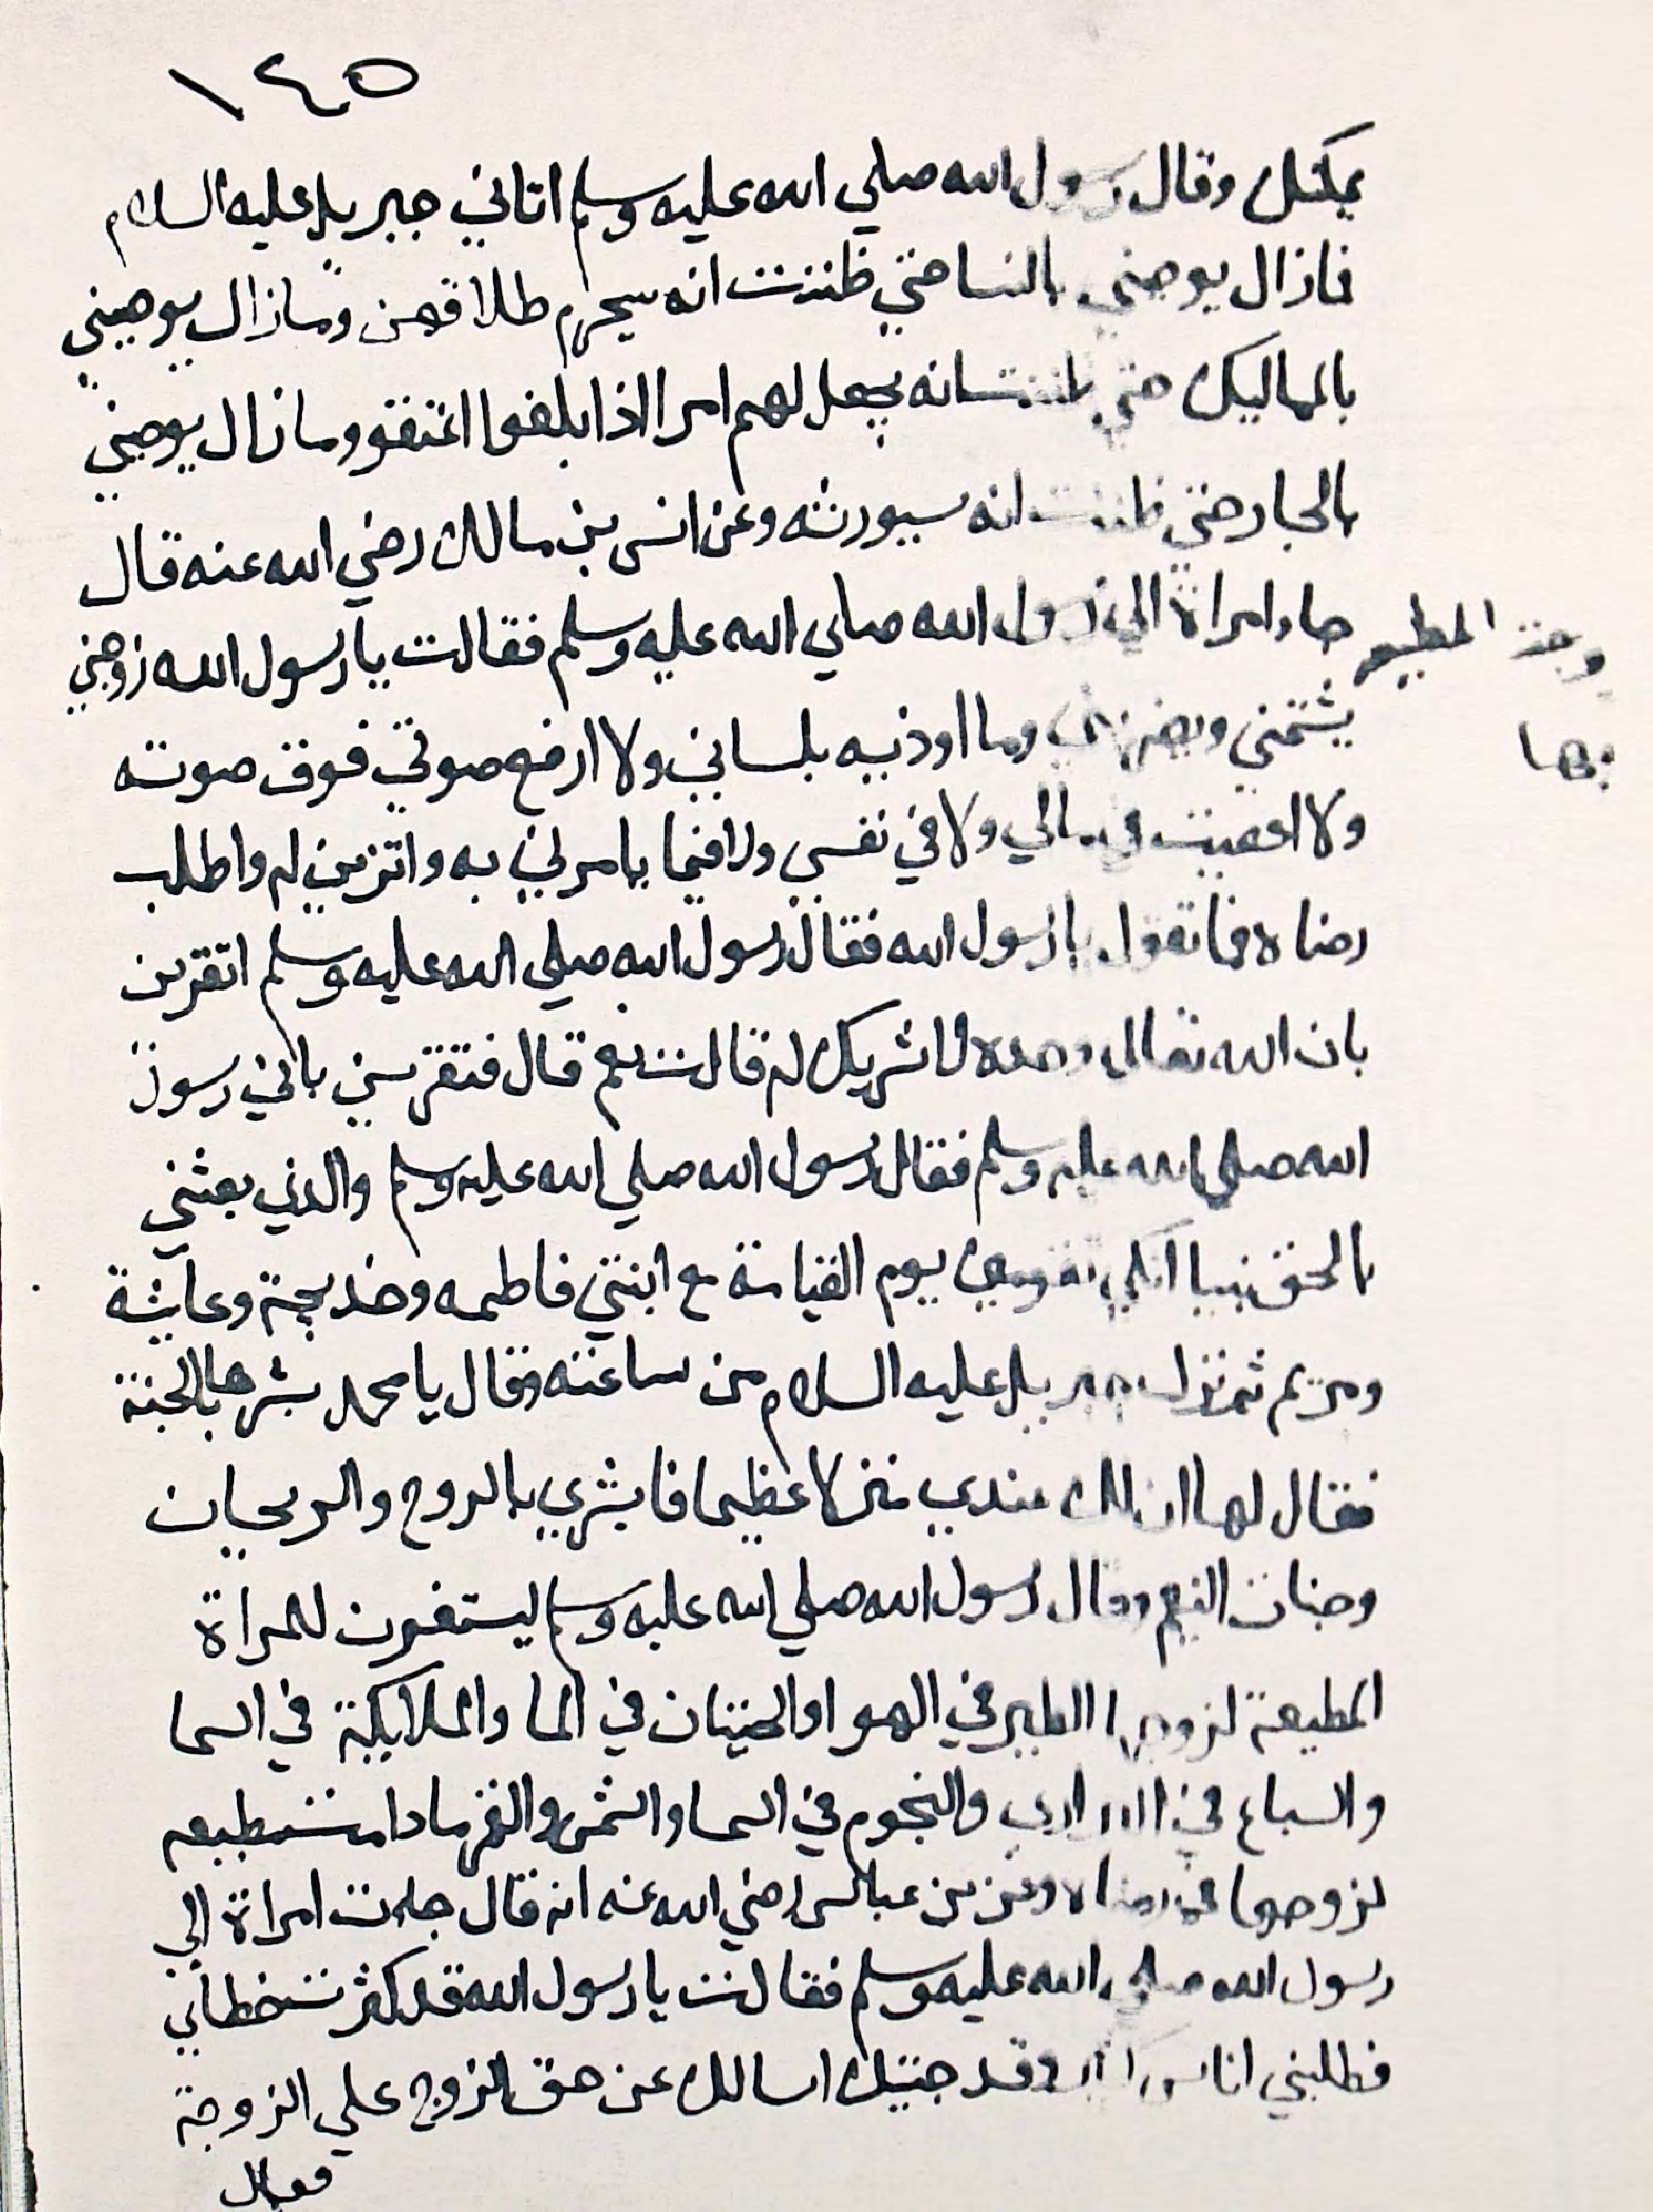 ١٤٥
وقال رسول الله صلي الله عليه وسلم اتاني جبريل عليه السلام
فمازال يوصيني بالنسا حتي ظننت انه سيحرم طلاقهن ومازال يوصيني
بالمماليك حتي ظننت انه يجعل لهم امرا اذا بلغوا اعتقو ومازال يوصيني
بالجار حتي ظننت انه سيورثه وعن انس بن مالك رضي الله عنه قال
جاء امراة الي رسول الله صلي الله عليه وسلم فقالت يا رسول الله زوجي
يشتمني ويضربني وما اوذيه بلساني ولا ارفع صوتي فوق صوته
ولا اعصيت في مالي ولا في نفسي ولا فيما يامرني به واتزين له واطلب
رضاه فما تقول يا رسول الله فقال رسول الله صلي الله عليه وسلم اتقرين
بان الله تعالي وحده لا شريك له قالت نعم قال فتقرين باني رسول
الله صلي الله عليه وسلم فقال رسول الله صلي الله عليه وسلم والذي بعثني
بالحق نبيا انكي يوم القيامة مع ابنتي فاطمه وخديجة وعايشة
ومريم ثم نزل جبريل عليه السلام من ساعته وقال يا محمد بشرها بالجنة
فقال لها ان لك عندي منزلا عظيما فابشري بالروح والريحان
وجنات النعيم وقال رسول الله صلي الله عليه وسلم ليستغفرن للمراة
المطيعة لزوجها الطير في الهوا والحيتان في الما والملايكة في السما
والسباع في البراري والنجوم في السما والشمس والقمر مادامت مطيعه
لزوجها في رضاه وعن بن عباس رضي الله عنه انه قال جات امراة الي
رسول الله صلي الله عليه وسلم فقالت يا رسول الله قد كثرت خطابي
فطلبني اناس وقد جيتك اسالك عن حق الزوج علي الزوجة
فقال
المطيع